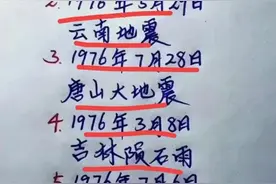 2. 1976年5月29日
云南地震
3. 1976年7月28日
唐山大地震
4. 1976年3月8日
吉林陨石雨
5. 1976年7月6日